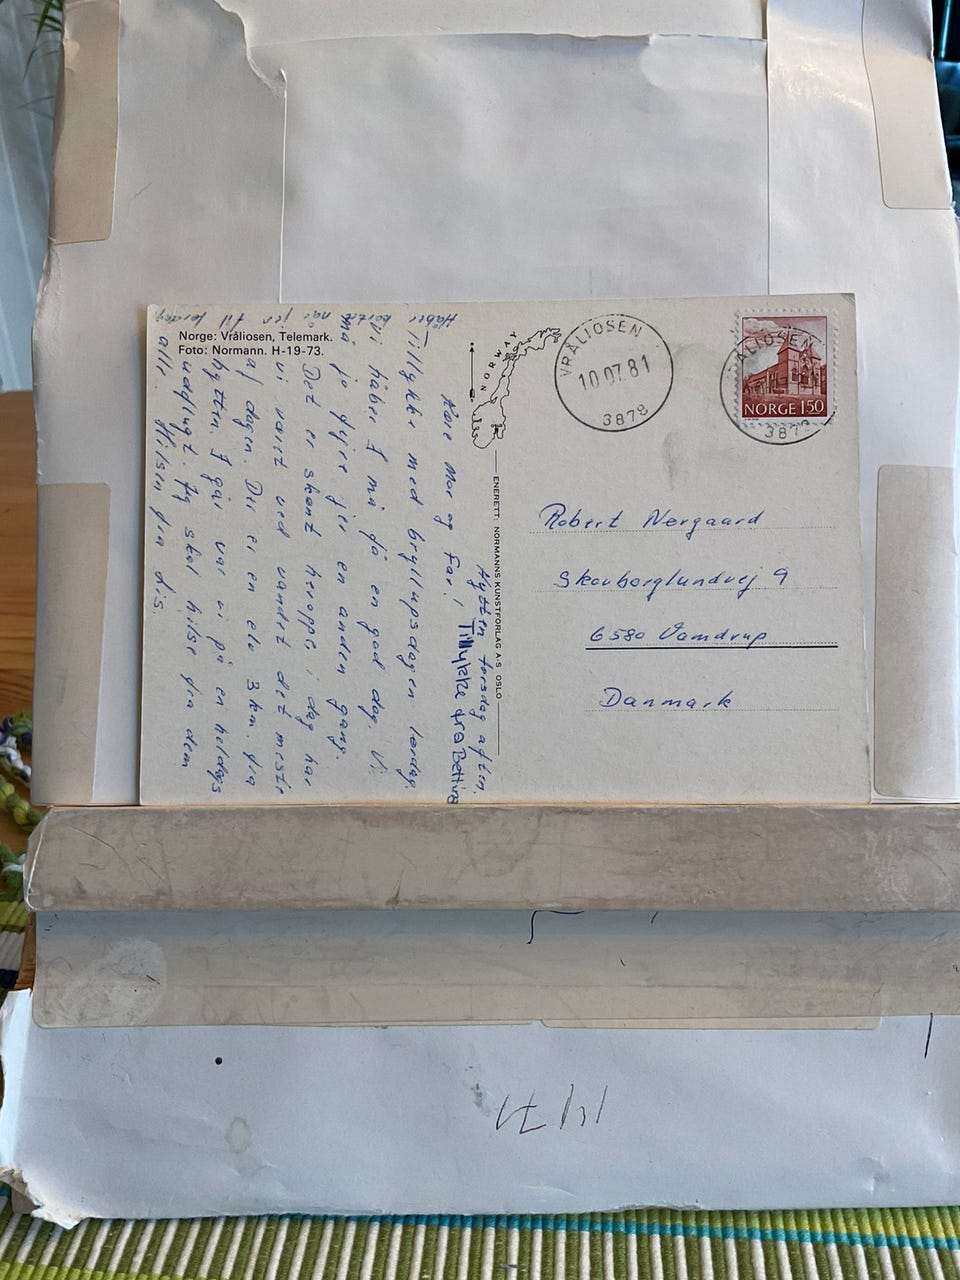 Norge: Vråliosen, Telemark.
Foto: Normann. H-19-73.
Hytten torsdag aften.
Kære Mor og Far!
Tillykke fra Bettina
Tillykke med bryllupsdagen lørdag.
Vi håber I må få en god dag. Vi
må jo fejre jer en anden gang.
Det er skønt heroppe, i dag har
vi været ved vandet det meste
af dagen. Der er en elv 3 km. fra
hytten. I går var vi på en heldags
udflugt. Jeg skal hilse fra dem
alle. Hilsen fra Lis.
Håber kortet når jer til lørdag
NORWAY
OSLO
ENERETT: NORMANNS KUNSTFORLAG A·S OSLO
VRÅLIOSEN
10 07.81
3878
VRÅLIOSEN
3878
NORGE 150
Robert Nørgaard
Skovborglundvej 9
6580 Vamdrup
Danmark